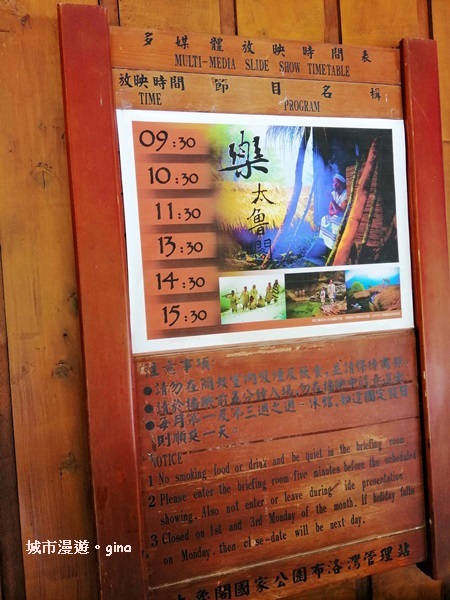 多媒體放映時間表
MULTI-MEDIA SLIDE SHOW TIMETABLE
放映時間 節目名稱
TIME PROGRAM
09:30
10:30
11:30
13:30
14:30
15:30
樂太魯閣
注意事項:
●請勿在簡報室內吸煙及飲食,並請保持肅靜
●請於播映前五分鐘入場,勿在播映中間
●每月第一及第三週之週一休館,如逢國定假日
則順延一天。
NOTICE
1 No smoking food or drink and be quiet in the briefing room
2 Please enter the briefing room five minutes before the scheduled
showing. Also not enter or leave during ide presentation
3 Closed on 1st and 3rd Monday of the month. If holiday falls
on Monday, then close-date will be next day.
太魯閣國家公園布洛灣管理站
城市漫遊。gina